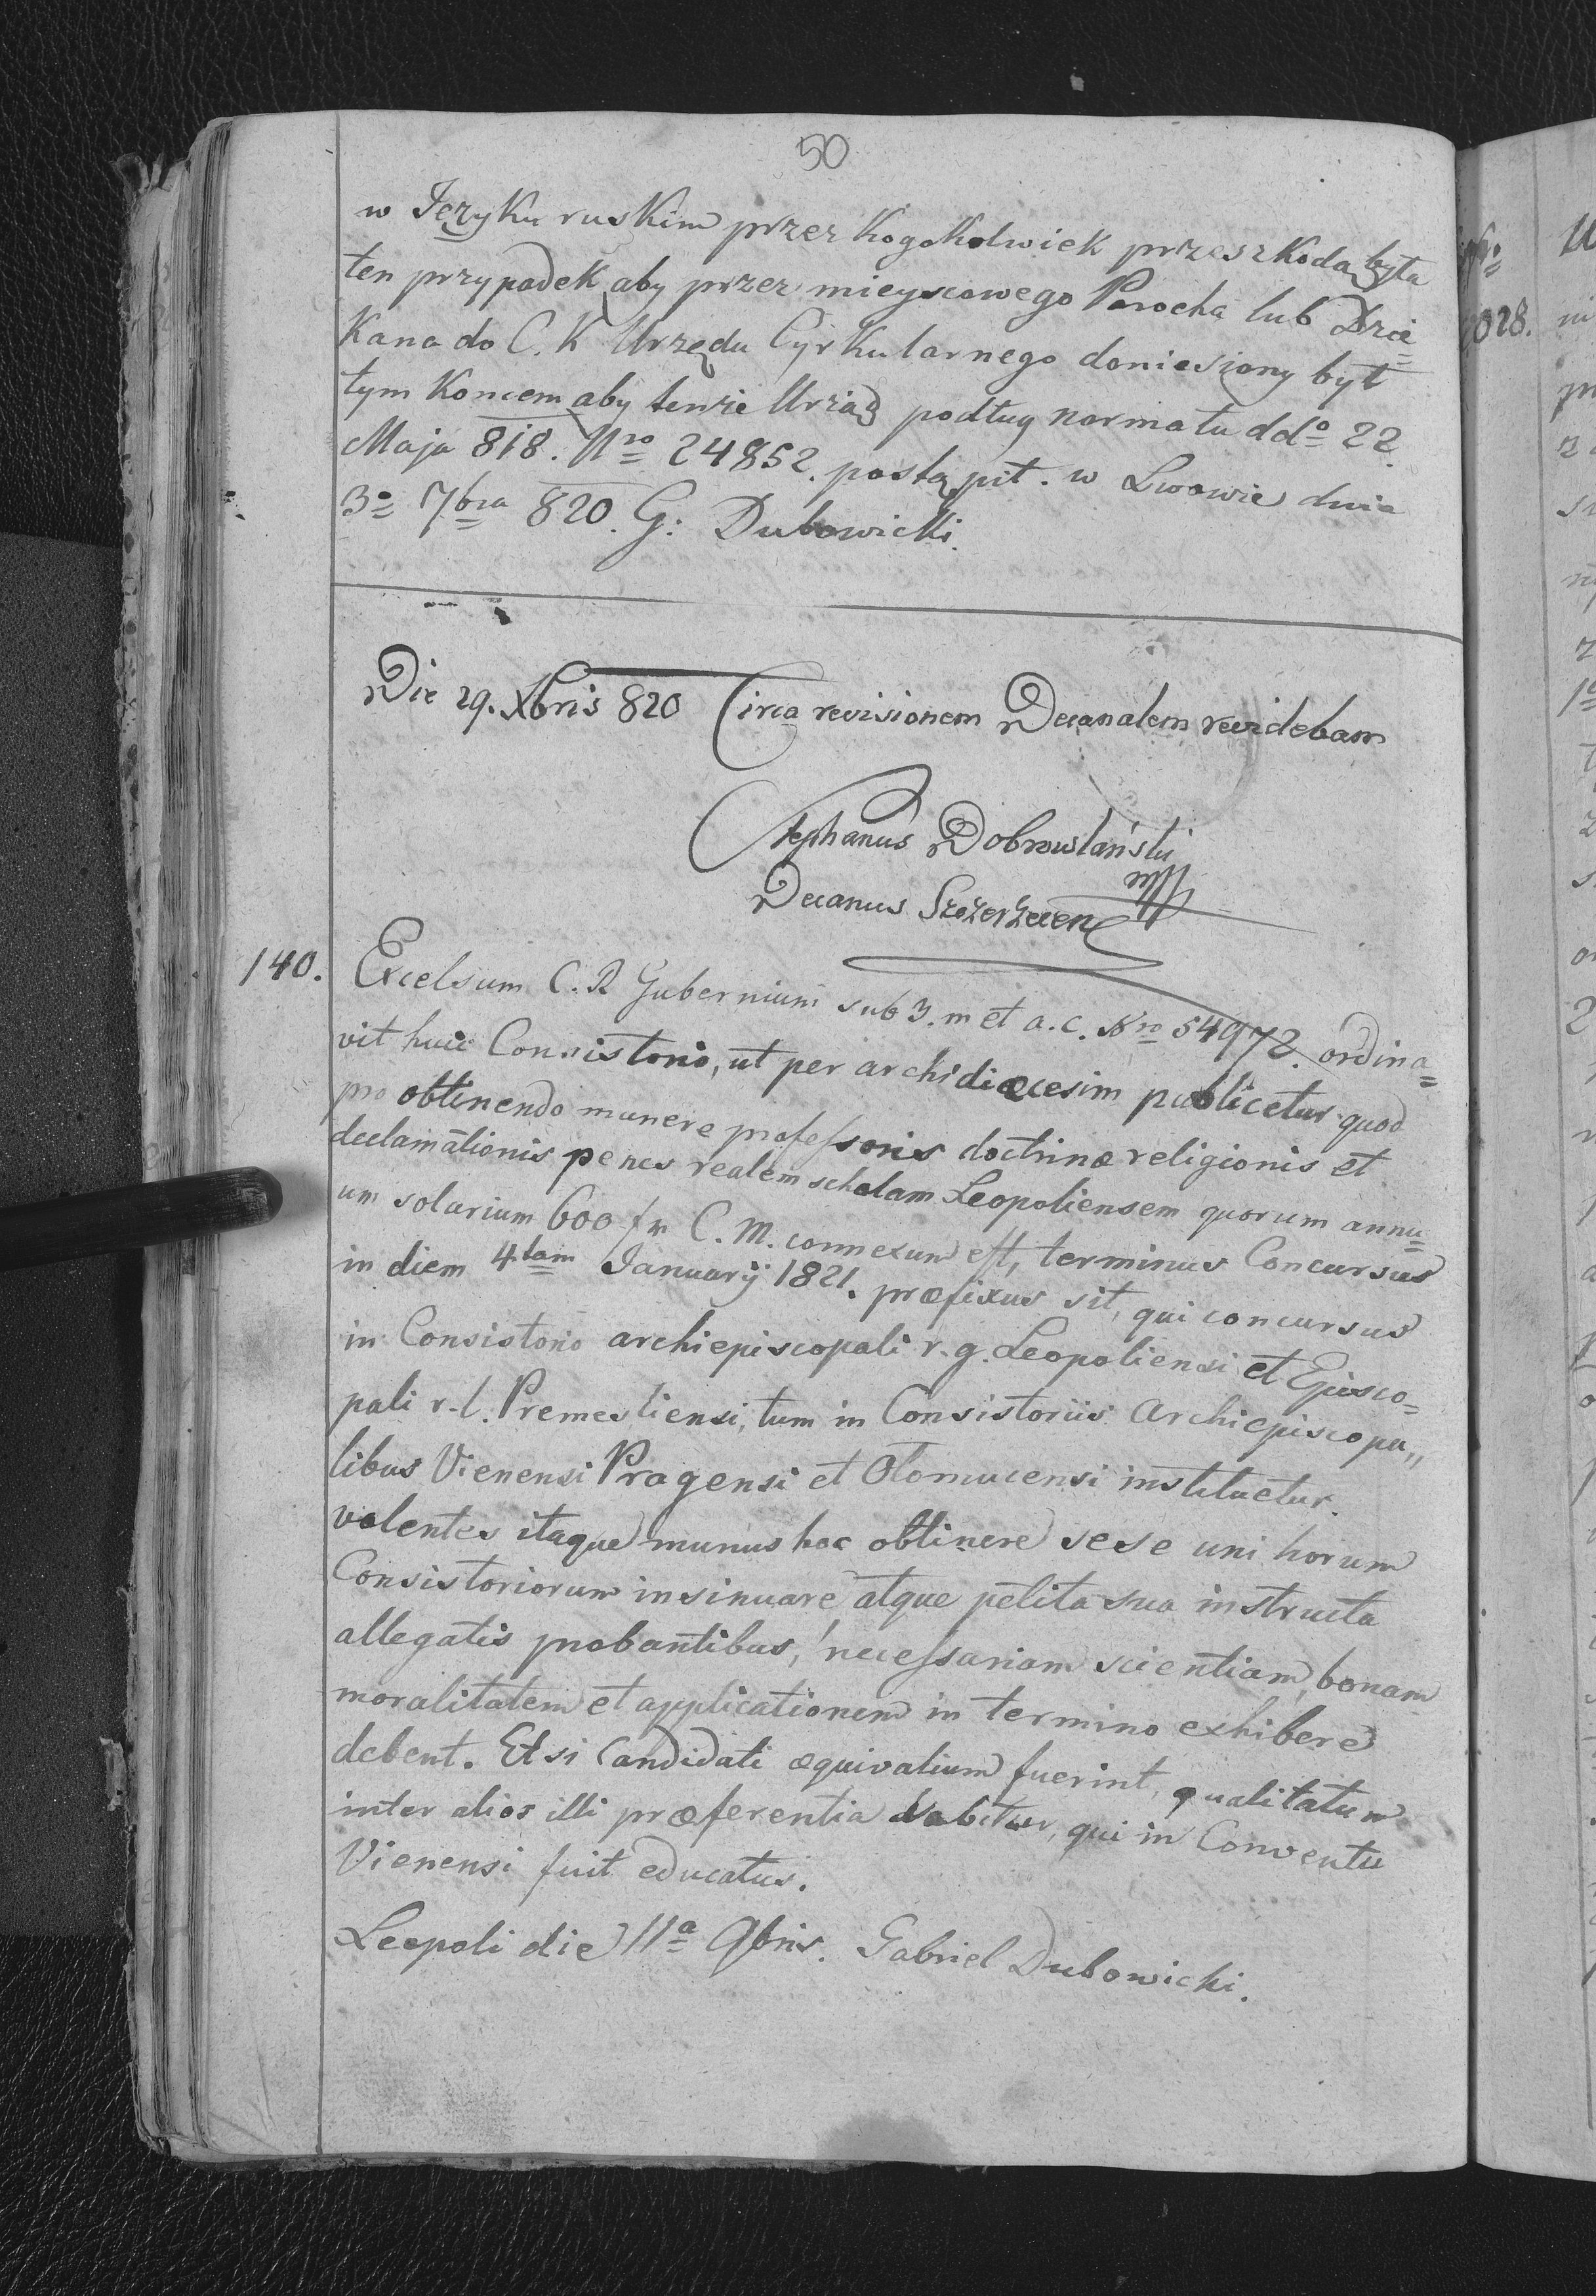 50
w Języku ruskim przez kogokolwiek przeszkoda była
ten przypadek aby przez mieyscowego Parocha lub Dzie=
kana do C. K Urzędu Cyrkularnego doniesiony był
tym koncem aby tenże Urząd podług normatu ddo 22
Maja 818. Nro 24852. postąpił. w Lwowie dnia
3o 7bra 820. G: Dubowicki.
Die 29. Xbris 820 Circa revisionem Decanalem revidebam
Stephanus Dobrowlański
mp
Decanus Szczerzecen
140. Excelsum C. R Gubernium sub 3. m et a. c. Nro 54972. ordina=
vit huic Consistorio, ut per archidiæcesim publicetur quod
pro obtinendo munere professoris doctrinæ religionis et
declamationis penes realem scholam Leopoliensem quorum annu=
um solarium 600 fr C. M. connexum est, terminus Concursus
in diem 4tam Januarij 1821. præfixus sit, qui concursus
in Consistorio archiepiscopali r. g. Leopoliensi et Episco=
pali r. l. Premesliensi, tum in Consistoriis Archiepiscopa„
libus Vienensi Pragensi et Olomucensi instituetur.
volentes itaque munus hoc obtinere sese uni horum
Consistoriorum insinuare atque petita sua instructa
allegatis probantibus, necessariam scientiam, bonam
moralitatem et applicationem in termino exhibere
debent. Et si Candidati æquivalium fuerint, qualitatum
inter alios illi præferentia dabitur, qui in Conventu
Vienensi fuit educatus.
Leopoli die 11a 9bris. Gabriel Dubowicki.
028.